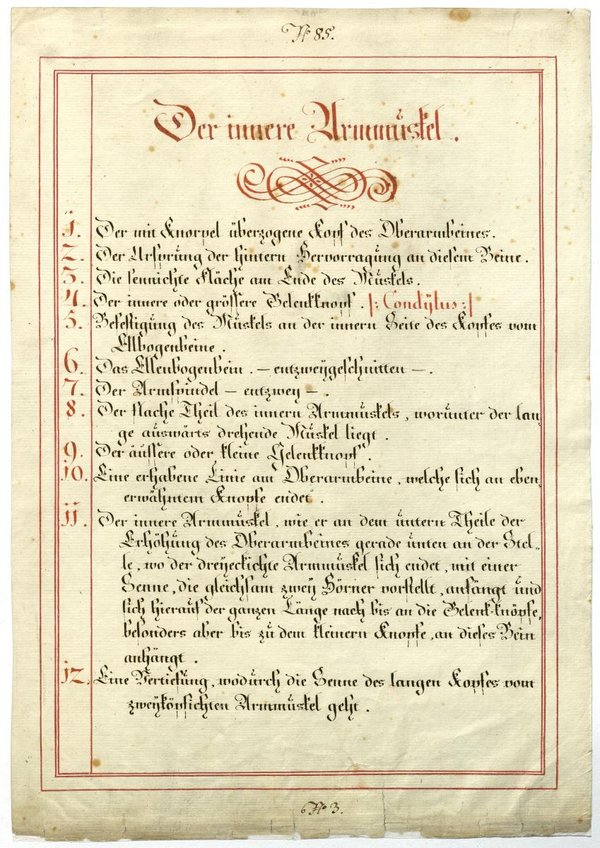 No 85.
Der innere Armmüskel.
1. Der mit Knorpel überzogene Kopf des Oberarmbeines.
2. Der Ursprüng der hintern Hervorragüng an diesem Beine.
3. Die sennichte Fläche am Ende des Müskels.
4. Der innere oder grössere Gelenkknopf. |: Condÿlus :|
5. Befestigüng des Müskels an der innern Seite des Kopfes vom
Ellbogenbeine.
6. Das Ellenbogenbein. – entzweÿgeschnitten –.
7. Der Armspindel – entzweÿ –.
8. Der flache Theil des innern Armmüskels, worünter der lan„
ge aüswärts drehende Müskel liegt.
9. Der äüssere oder kleine Gelenkknopf.
10. Eine erhabene Linie am Oberarmbeine, welche sich an eben„
erwähntem Knopfe endet.
11. Der innere Armmüskel, wie er an dem üntern Theile der
Erhöhüng des Oberarmbeines gerade ünten an der Stel„
le, wo der dreÿeckichte Armmüskel sich endet, mit einer
Senne, die gleichsam zweÿ Hörner vorstellt, anfängt ünd
sich hieraüf der ganzen Länge nach bis an die Gelenk-knöpfe,
besonders aber bis zü dem kleinern Knopfe, an dieses Bein
anhängt.
12. Eine Vertiefüng, wodürch die Senne des langen Kopfes vom
zweÿköpfichten Armmüskel geht.
No 3.